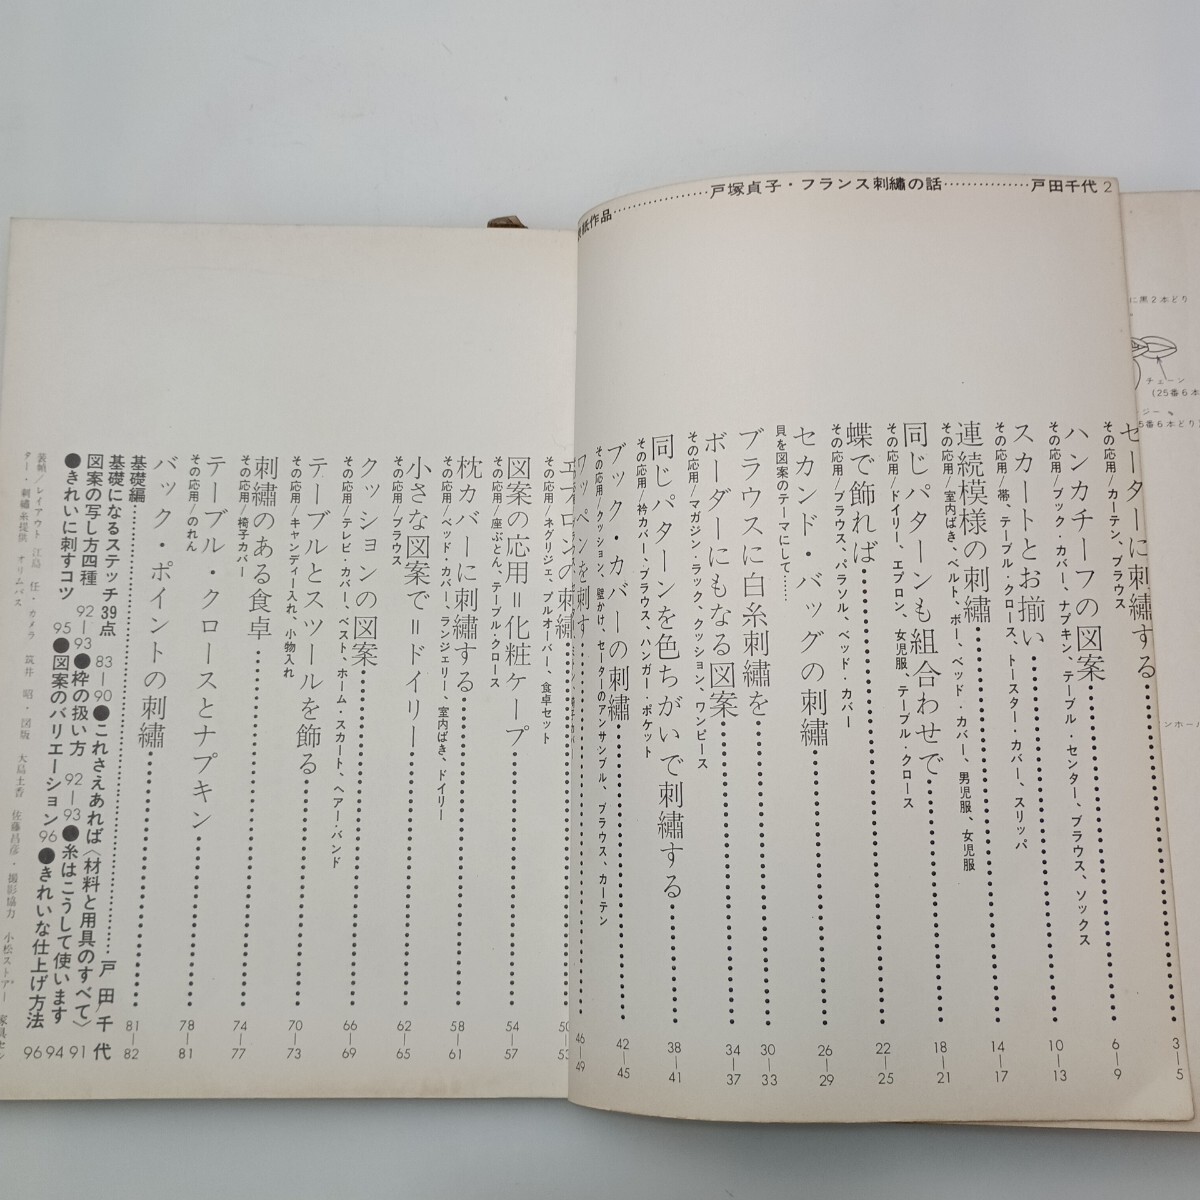 紙作品……………戸塚貞子・フランス刺繡の話……………戸田千代 2
セーターに刺繡する……………3—5
その応用/カーテン、ブラウス
ハンカチーフの図案……………6—9
その応用/ブック・カバー、ナプキン、テーブル・センター、ブラウス、ソックス
スカートとお揃い……………10—13
その応用/帯、テーブル・クロース、トースター・カバー、スリッパ
連続模様の刺繡……………14—17
その応用/室内ばき、ベルト、ボー、ベッド・カバー、男児服、女児服
同じパターンも組合わせで……………18—21
その応用/ドイリー、エプロン、女児服、テーブル・クロース
蝶で飾れば……………22—25
その応用/ブラウス、パラソル、ベッド・カバー
セカンド・バッグの刺繡……………26—29
貝を図案のテーマにして……
ブラウスに白糸刺繡を……………30—33
ボーダーにもなる図案……………34—37
その応用/マガジン・ラック、クッション、ワンピース
同じパターンを色ちがいで刺繡する……………38—41
その応用/衿カバー、ブラウス、ハンガー・ポケット
ブック・カバーの刺繡……………42—45
その応用/クッション、壁かけ、セーターのアンサンブル、ブラウス、カーテン
ワッペンを刺す……………46—49
エプロンの刺繡……………50—53
その応用/ネグリジェ、プルオーバー、食卓セット
図案の応用＝化粧ケープ……………54—57
その応用/座ぶとん、テーブル・クロース
枕カバーに刺繡する……………58—61
その応用/ベッド・カバー、ランジェリー、室内ばき、ドイリー
小さな図案で＝ドイリー……………62—65
その応用/ブラウス
クッションの図案……………66—69
その応用/テレビ・カバー、ベスト、ホーム・スカート、ヘアー・バンド
テーブルとスツールを飾る……………70—73
その応用/キャンディー入れ、小物入れ
刺繡のある食卓……………74—77
その応用/椅子カバー
テーブル・クロースとナプキン……………78—81
その応用/のれん
バック・ポイントの刺繡……………81—82
基礎編……………戸田千代
基礎になるステッチ39点 83—90●これさえあれば〈材料と用具のすべて〉91
図案の写し方四種 92—93●枠の扱い方 92—93●糸はこうして使います 94
●きれいに刺すコツ 95●図案のバリエーション 96●きれいな仕上げ方法 96
装幀/レイアウト 江島 任・カメラ 筑井 昭・図版 大島土香 佐藤昌彦・撮影協力 小松ストアー
ター・刺繡糸提供 オリムパス
に黒2本どり
チェーン
(25番6本
ジー
5番6本どり)
ンホール